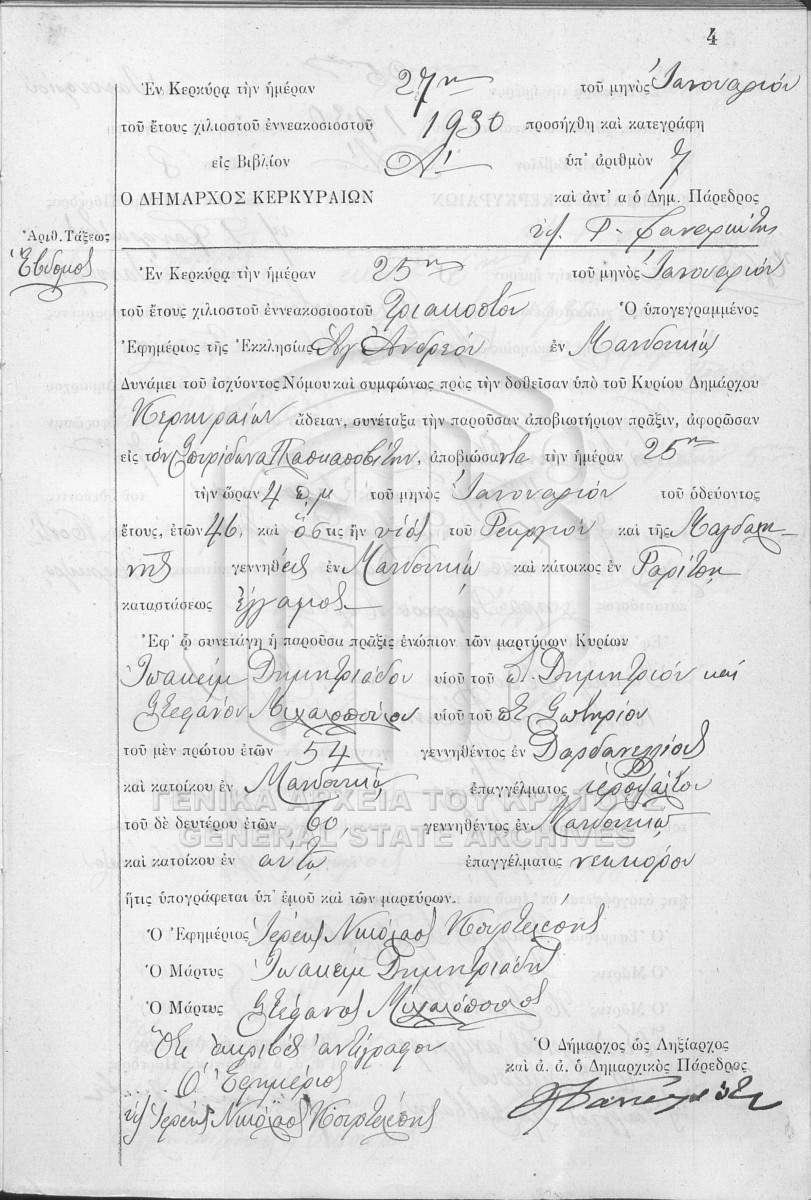 4
Ἐν Κερκύρᾳ τὴν ἡμέραν 27ην τοῦ μηνὸς Ἰανουαρίου
τοῦ ἔτους χιλιοστοῦ ἐννεακοσιοστοῦ 1930 προσήχθη καὶ κατεγράφη
εἰς Βιβλίον Α' ὑπ' ἀριθμὸν 7
Ο ΔΗΜΑΡΧΟΣ ΚΕΡΚΥΡΑΙΩΝ καὶ ἀντ' α ὁ Δημ. Πάρεδρος
Ἀριθ. Τάξεως
Ἕβδομος
Ἐν Κερκύρᾳ τὴν ἡμέραν 25ην τοῦ μηνὸς Ἰανουαρίου
τοῦ ἔτους χιλιοστοῦ ἐννεακοσιοστοῦ τριακοστοῦ Ὁ ὑπογεγραμμένος
Ἐφημέριος τῆς Ἐκκλησίας Ἁγ Ἀνδρέου ἐν Μανδουκίῳ
Δυνάμει τοῦ ἰσχύοντος Νόμου καὶ συμφώνως πρὸς τὴν δοθεῖσαν ὑπὸ τοῦ Κυρίου Δημάρχου
Κερκυραίων ἄδειαν, συνέταξα τὴν παροῦσαν ἀποβιωτήριον πρᾶξιν, ἀφορῶσαν
εἰς τὸν Σπυρίδωνα, ἀποβιώσαντα τὴν ἡμέραν 25ην
τὴν ὥραν 4 π.μ τοῦ μηνὸς Ἰανουαρίου τοῦ ὁδεύοντος
ἔτους, ἐτῶν 46, καὶ ὅστις ἦν υἱὸς τοῦ Γεωργίου καὶ τῆς Μαγδαλη-
νῆς γεννηθεὶς ἐν Μανδουκίῳ καὶ κάτοικος ἐν Γαρίτσῃ
καταστάσεως ἔγγαμος
Ἐφ' ᾧ συνετάγη ἡ παροῦσα πρᾶξις ἐνώπιον τῶν μαρτύρων Κυρίων
Ἰωακεὶμ Δημητριάδου υἱοῦ τοῦ π. Δημητρίου καὶ
Στεφάνου Μιχαλοπούλου υἱοῦ τοῦ Σωτηρίου
τοῦ μὲν πρώτου ἐτῶν 54 γεννηθέντος ἐν Δαρδανελίοις
καὶ κατοίκου ἐν Μανδουκίῳ ἐπαγγέλματος ἱεροψάλτου
τοῦ δὲ δευτέρου ἐτῶν 60, γεννηθέντος ἐν Μανδουκίῳ
καὶ κατοίκου ἐν αὐτῷ ἐπαγγέλματος νεωκόρου
ἥτις ὑπογράφεται ὑπ' ἐμοῦ καὶ τῶν μαρτύρων.
Ὁ Ἐφημέριος Ἱερεὺς Νικόλαος
Ὁ Μάρτυς Ἰωακεὶμ Δημητριάδης
Ὁ Μάρτυς Στέφανος Μιχαλόπουλος
Ὅτι ἀκριβὲς ἀντίγραφον
Ὁ Ἐφημέριος
Ἱερεὺς Νικόλαος
Ὁ Δήμαρχος ὡς Ληξίαρχος
καὶ ἀ. ἀ. ὁ Δημαρχικὸς Πάρεδρος
ΓΕΝΙΚΑ ΑΡΧΕΙΑ ΤΟΥ ΚΡΑΤΟΥΣ
GENERAL STATE ARCHIVES